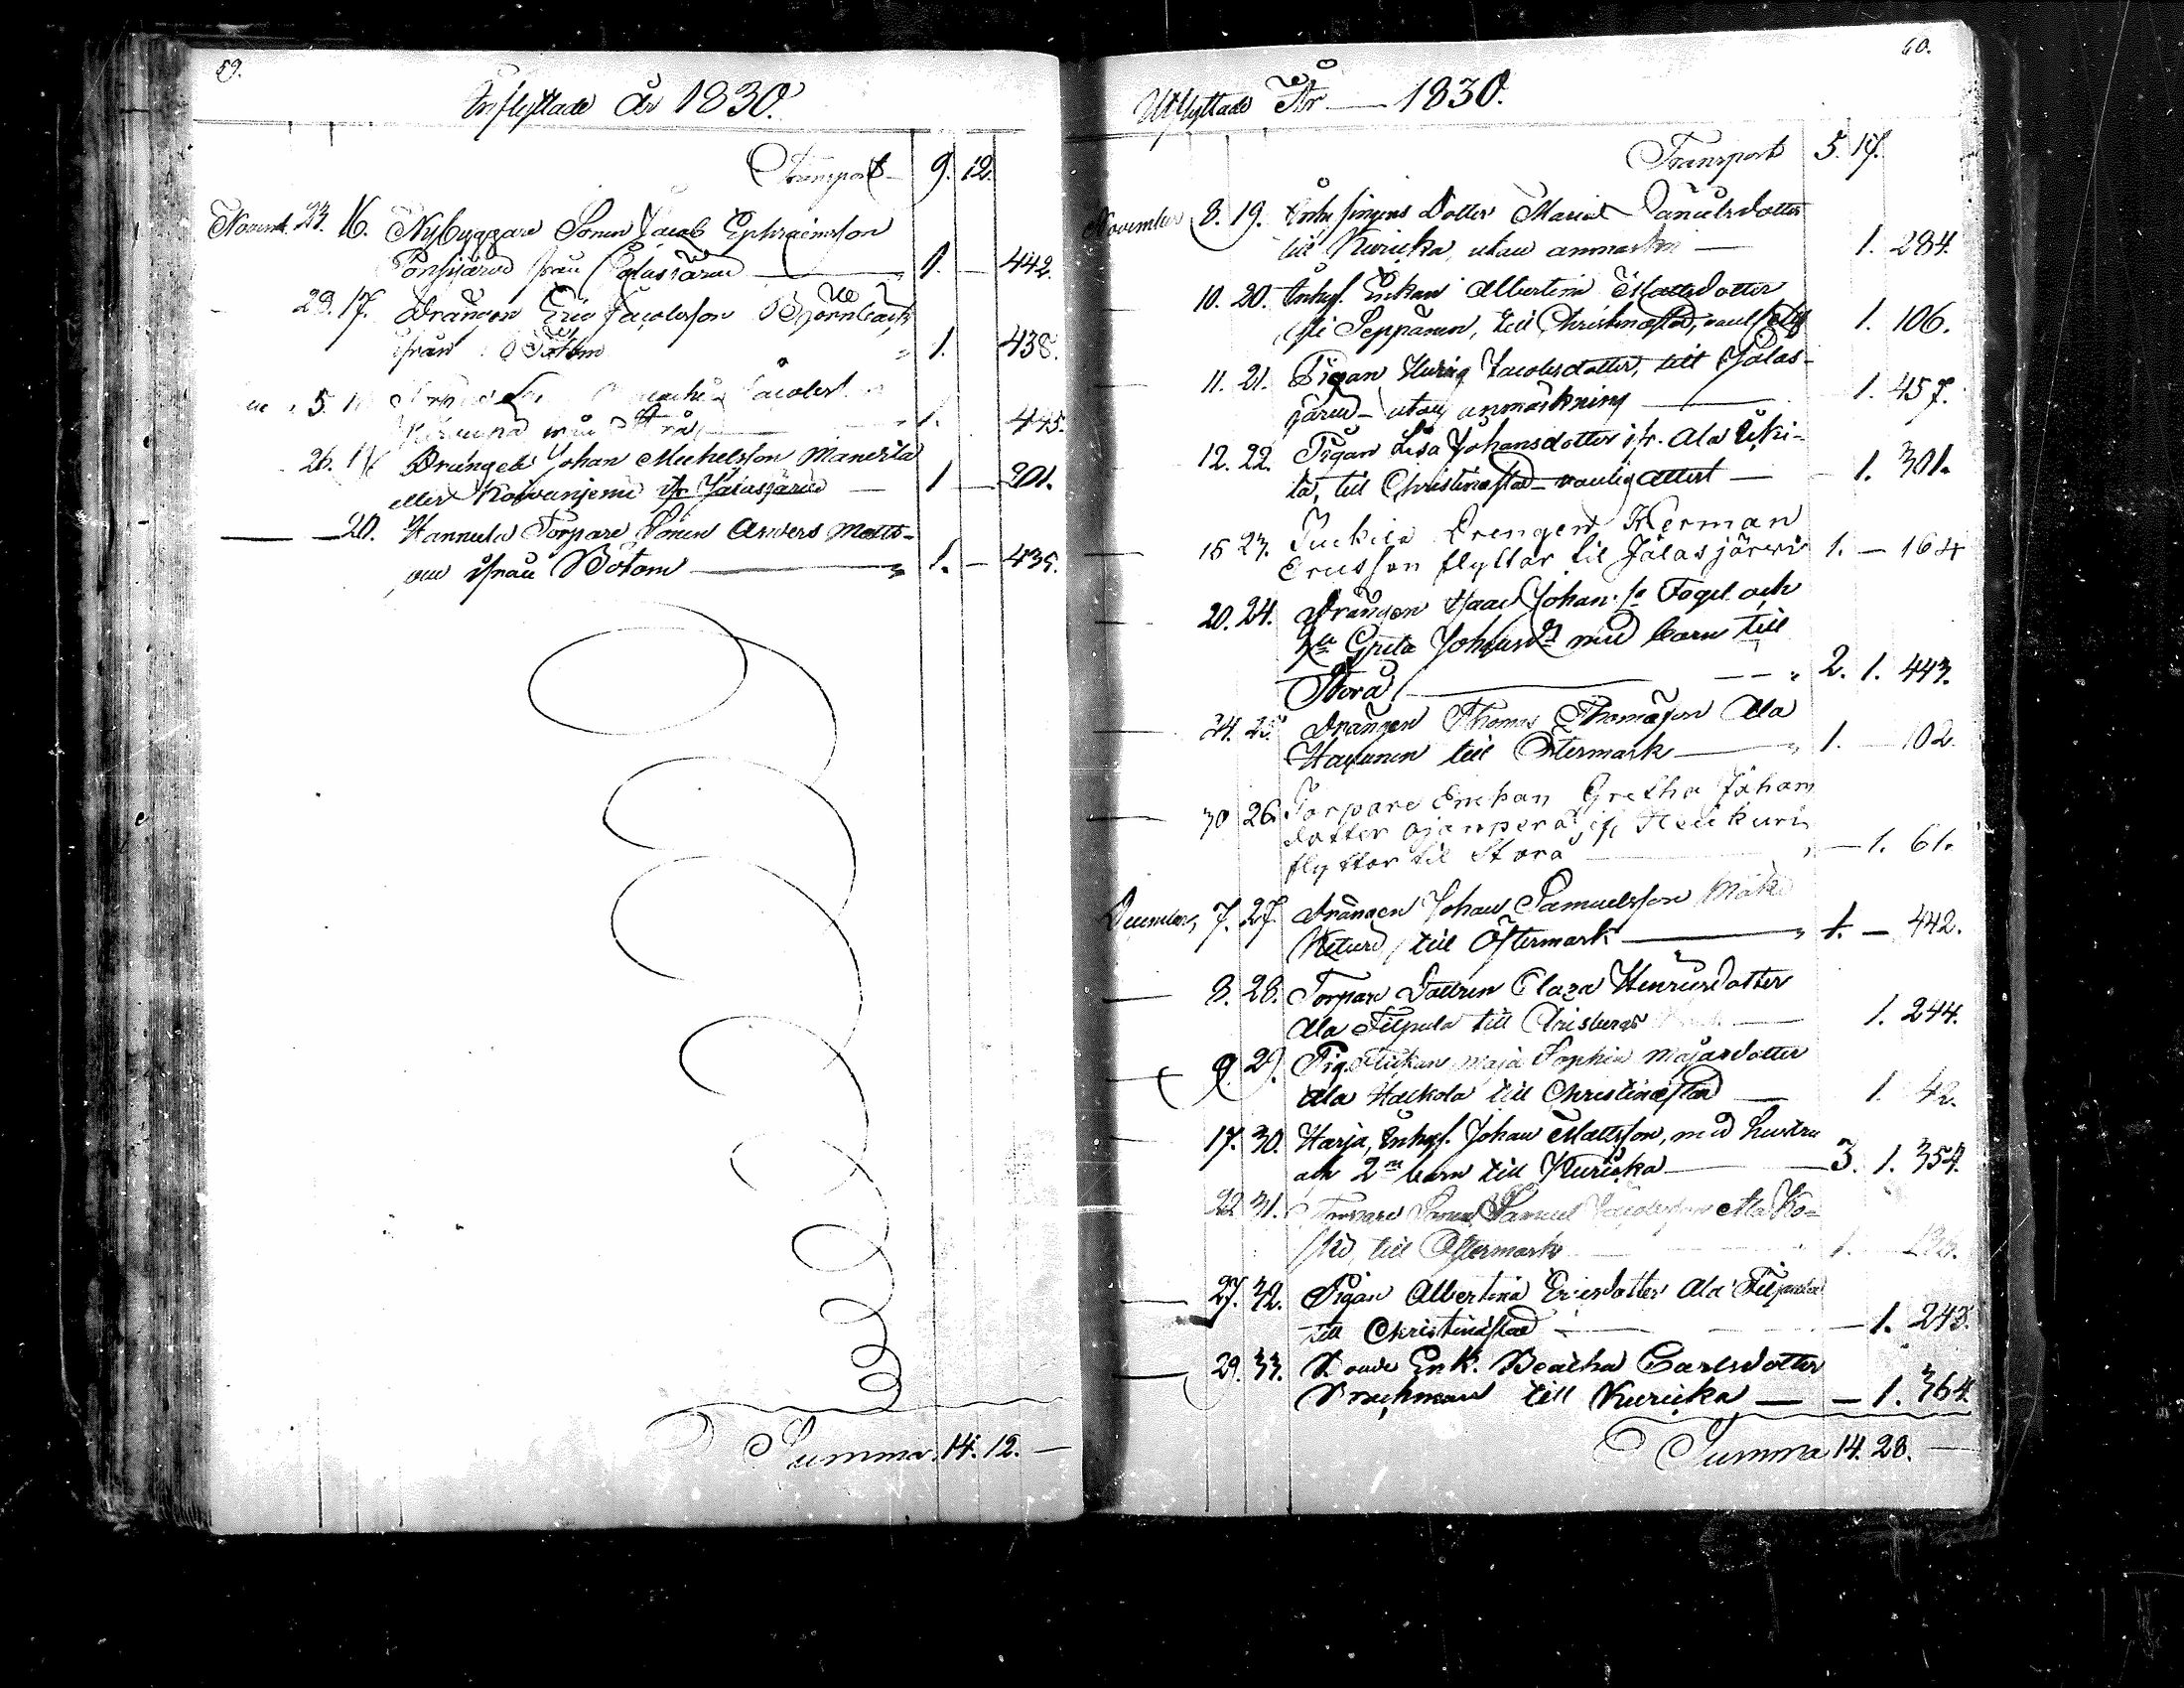 59.
Inflyttade år 1830.
Transport 9. 12.
Novemb. 23. 16. Nybyggare Sonen Jacob Ephraimsson
från Jalasjärvi 1. — 442.
29. 17. Drängen Eric Jacobsson Björnback
ifrån Bötom 1. 438.
5. Jacobs
från Storå 1. 445.
26. Drängen Johan Michelsson Manerla
eller ifr Jalasjärvi — 1 — 201.
20. Hannula Torpare Sonen Anders Matts-
son ifrån Bötom — 1. — 435.
Summa. 14. 12. —
60.
Utflyttade År — 1830.
Transport 5. 17.
November 8. 19. Inhysinges Dotter Maria Danielsdotter
till Kuricka, utan anmärkn — 1. 284.
10. 20. Inhys. Enkan Albertina Mattsdotter
Seppänen, till Christinæstad, 1. 106.
11. 21. Pigan Jacobsdotter, till Jalas-
järvi — utan anmärkning — 1. 457.
12. 22. Pigan Lisa Johansdotter ifr. Ala
la, till Christinæstad — vanlig attest — 1. 301.
15 23. Drengen Herman
Ericsson flyttar til Jalasjärvi 1. — 164
20. 24. Drängen Isaac Johan. so Fogel och
Hu Greta Johansdr med barn till
Storå — 2. 1. 443.
24. 25. Drängen Thomas Thomasson Ala
till Östermark — 1. — 102.
30 26. Torpare Enckan Gretha Johans
dotter Ojanperä
flyttar til Storå — 1. 61.
December, 7. 27. Drängen Johan Samuelsson Mäki
till Östermark — 1. — 442.
8. 28. Torpare Dottren Clara Henricsdotter
Ala Filpula till — 1. 244.
9. 29. Pig. Flickan Maja Sophia Majasdotter
Ala Harkola till Christinæstad — 1. 42.
17. 30. Harja, Inhys. Johan Mattsson, med hustru
och 2ne barn till Kuricka — 3. 1. 354.
22 31. Torpare Sonen Samuel Jacobsson Ala Ko-
till Östermark — 1.
27. 32. Pigan Albertina Ericsdotter Ala Filpula
till Christinæstad — 1. 243.
29. 33. Enk. Beatha Carlsdotter
till Kuricka — 1. 364.
Summa 14. 28. —